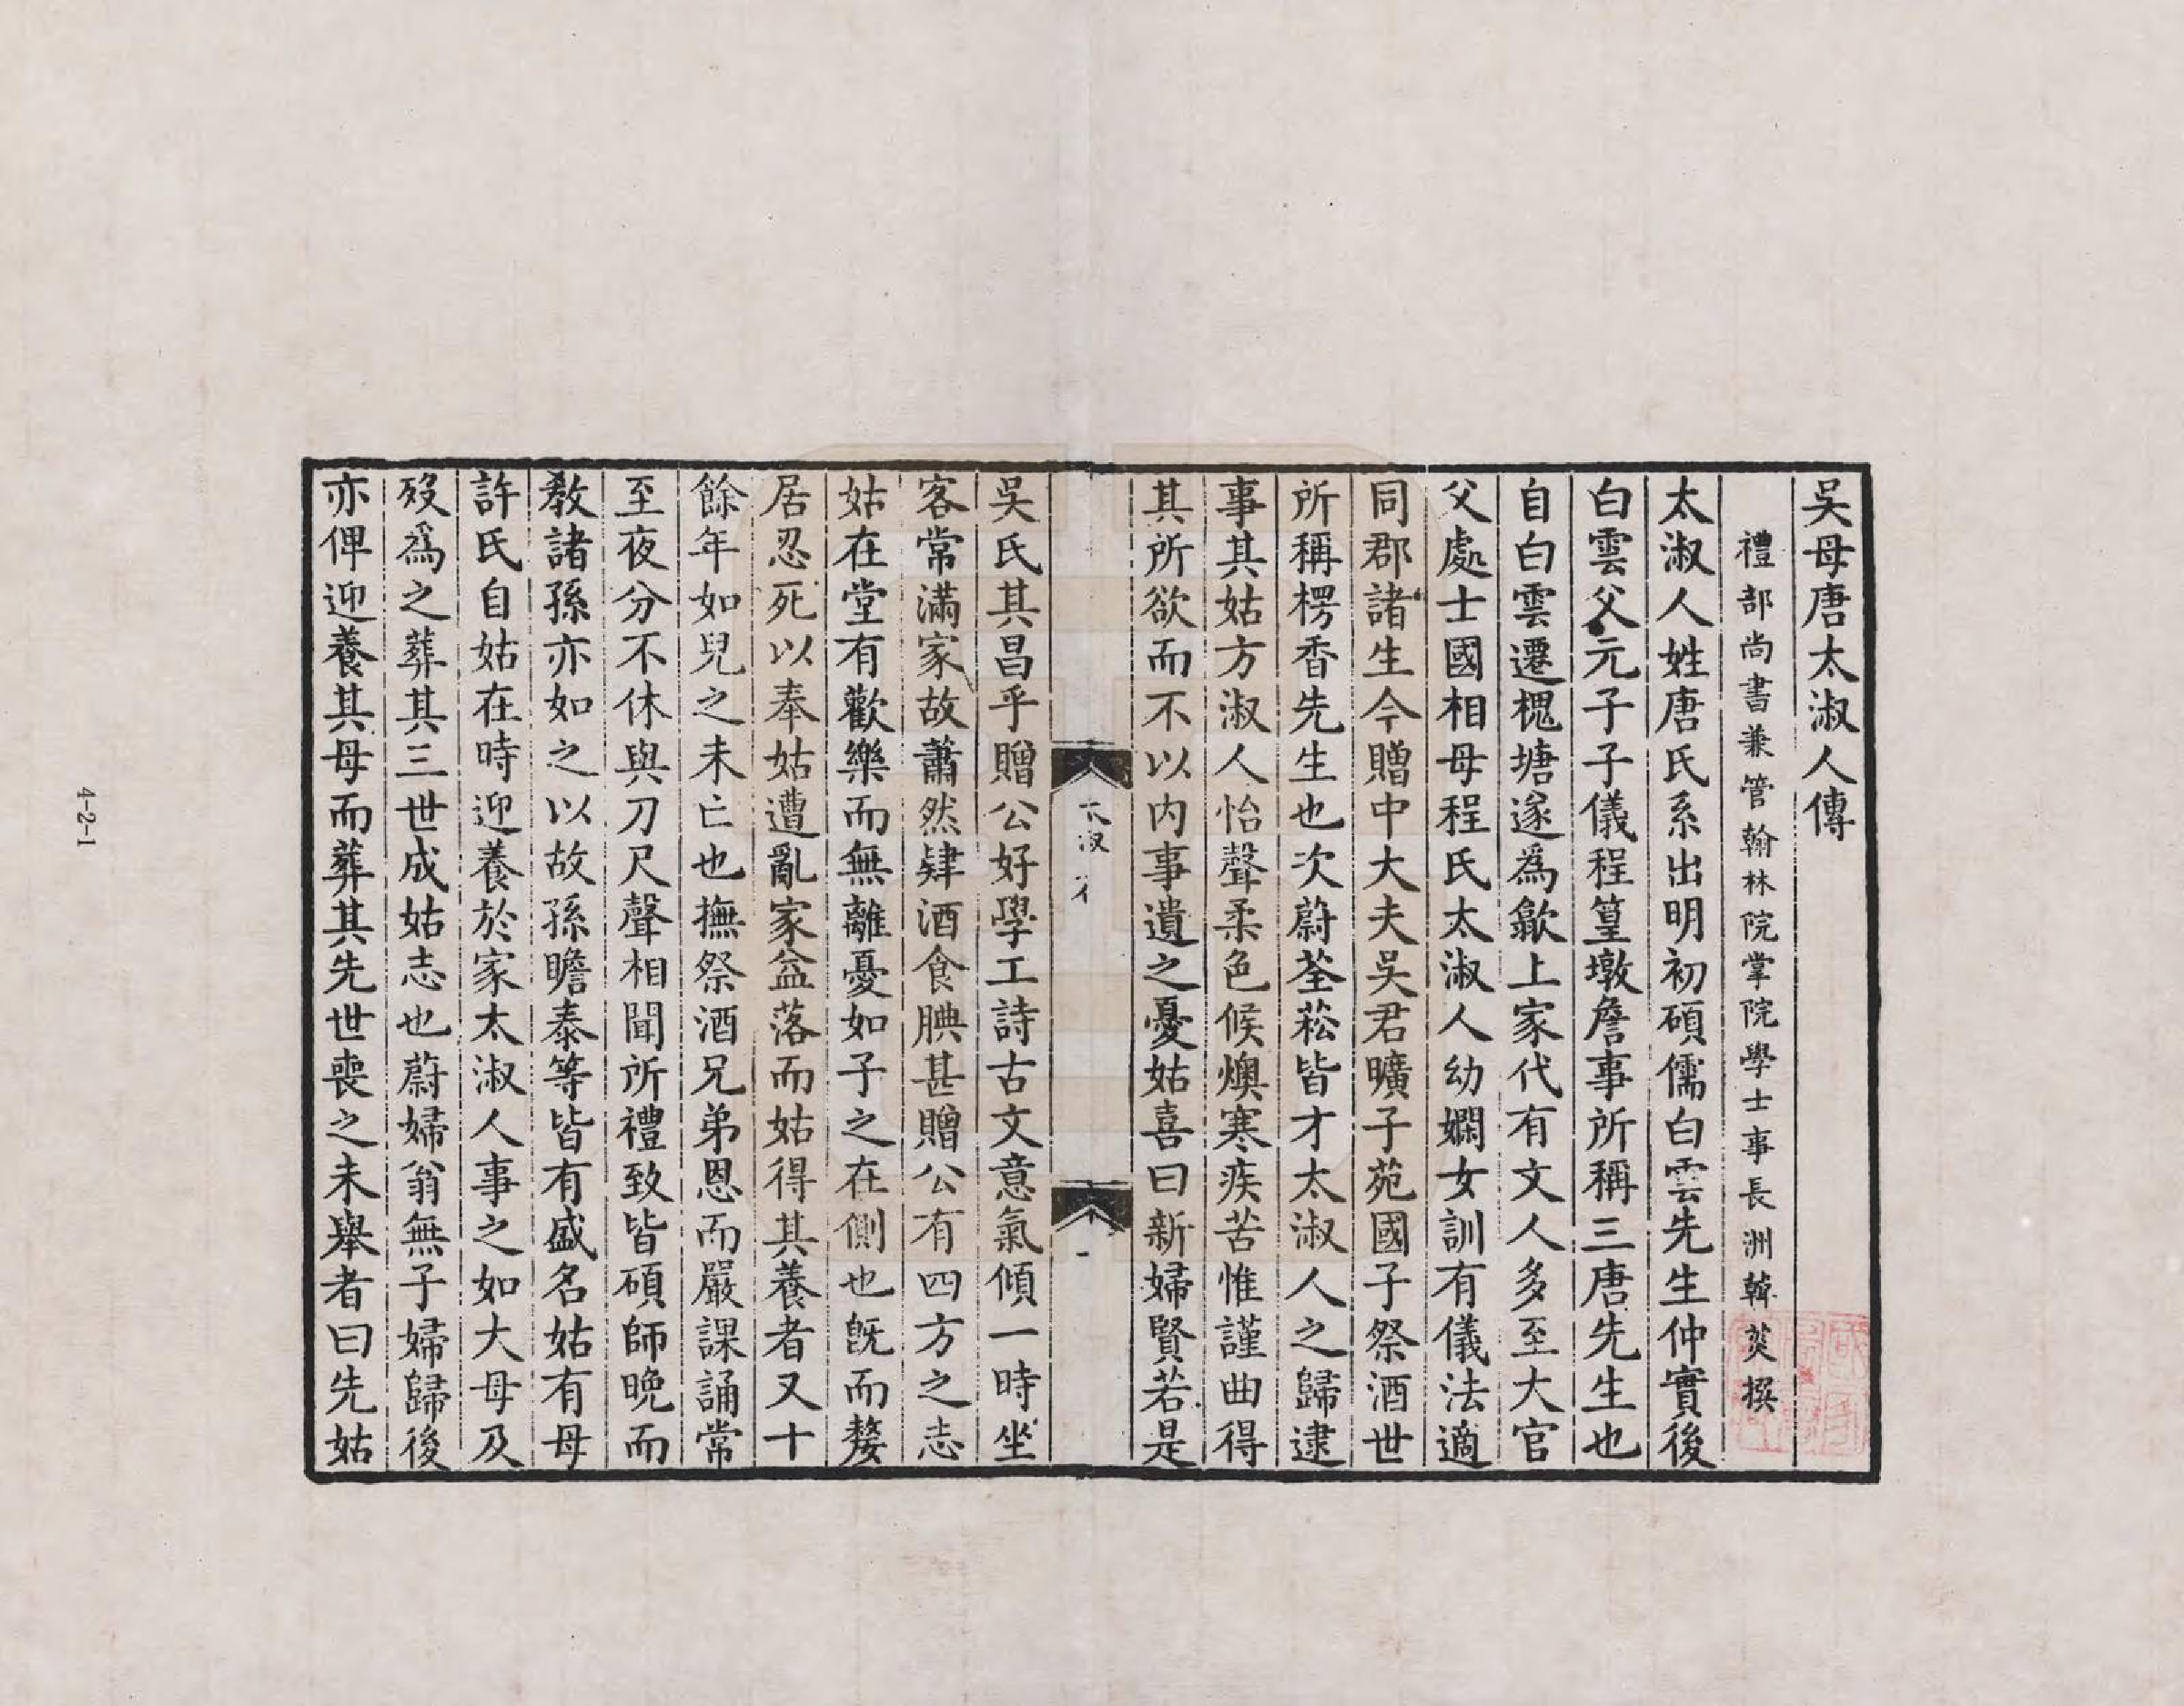 吳母唐太淑人傳
禮部尚書兼管翰林院掌院學士事長洲韓菼撰
太淑人姓唐氏系出明初碩儒白雲先生仲實後
白雲父元子子儀程篁墩詹事所稱三唐先生也
自白雲遷槐塘遂爲歙上家代有文人多至大官
父處士國相母程氏太淑人幼嫻女訓有儀法適
同郡諸生今贈中大夫吳君曠子苑國子祭酒世
所稱楞香先生也次蔚荃菘皆才太淑人之歸逮
事其姑方淑人怡聲柔色候燠寒疾苦惟謹曲得
其所欲而不以内事遺之憂姑喜曰新婦賢若是
太淑
一
吳氏其昌乎贈公好學工詩古文意氣傾一時坐
客常滿家故蕭然肄酒食腆甚贈公有四方之志
姑在堂有歡樂而無離憂如子之在側也既而嫠
居忍死以奉姑遭亂家益落而姑得其養者又十
餘年如兒之未亡也撫祭酒兄弟恩而嚴課誦常
至夜分不休與刀尺聲相聞所禮致皆碩師晚而
教諸孫亦如之以故孫瞻泰等皆有盛名姑有母
許氏自姑在時迎養於家太淑人事之如大母及
歿爲之葬其三世成姑志也蔚婦翁無子婦歸後
亦俾迎養其母而葬其先世喪之未舉者曰先姑
4-2-1